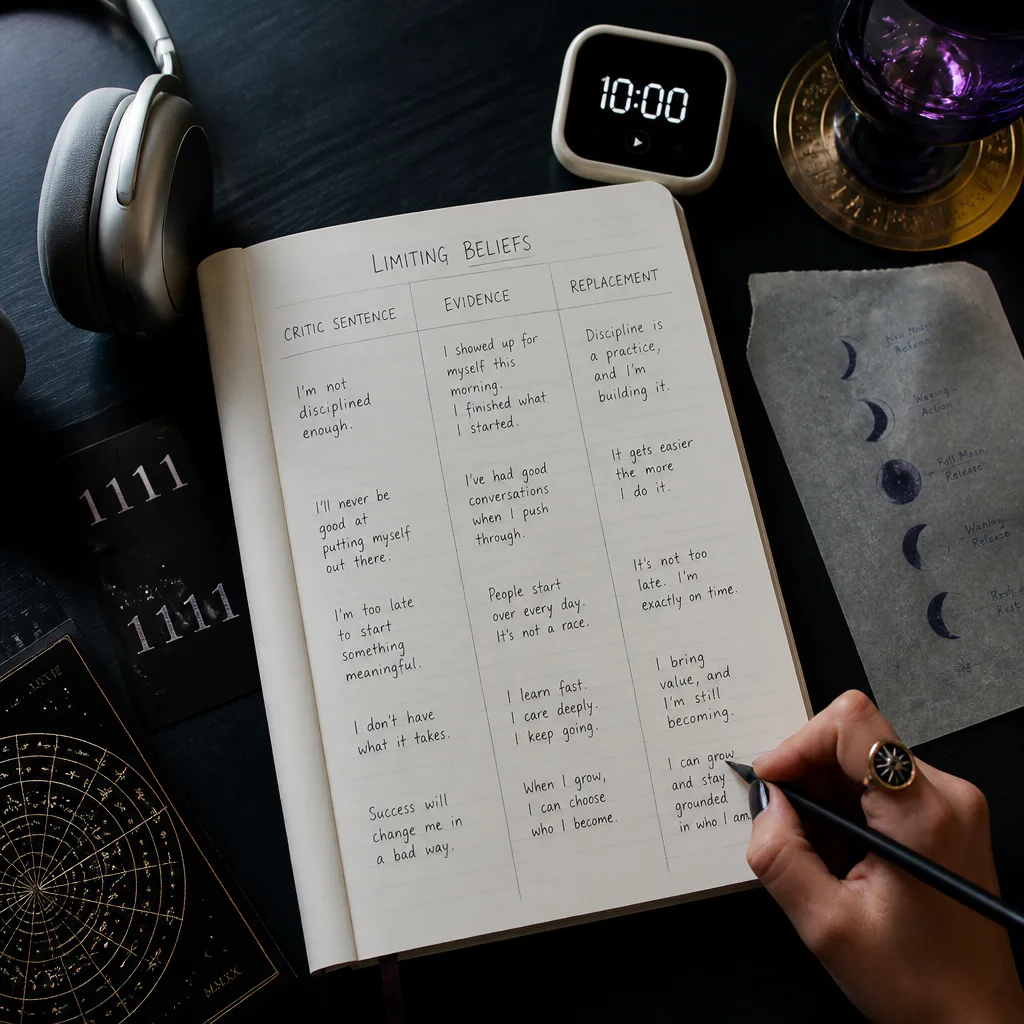 10:00
LIMITING BELIEFS
CRITIC SENTENCE
EVIDENCE
REPLACEMENT
I'm not
disciplined
enough.
I showed up for
myself this
morning.
I finished what
I started.
Discipline is
a practice,
and I'm
building it.
I'll never be
good at
putting myself
out there.
I've had good
conversations
when I push
through.
It gets easier
the more
I do it.
I'm too late
to start
something
meaningful.
People start
over every day.
It's not a race.
It's not too
late. I'm
exactly on time.
I don't have
what it takes.
I learn fast.
I care deeply.
I keep going.
I bring
value, and
I'm still
becoming.
Success will
change me in
a bad way.
When I grow,
I can choose
who I become.
I can grow
and stay
grounded
in who I am.
1111
1111
New Moon
Waxing
Action
Full Moon
Release
Waning
Release
Rest
MMXX